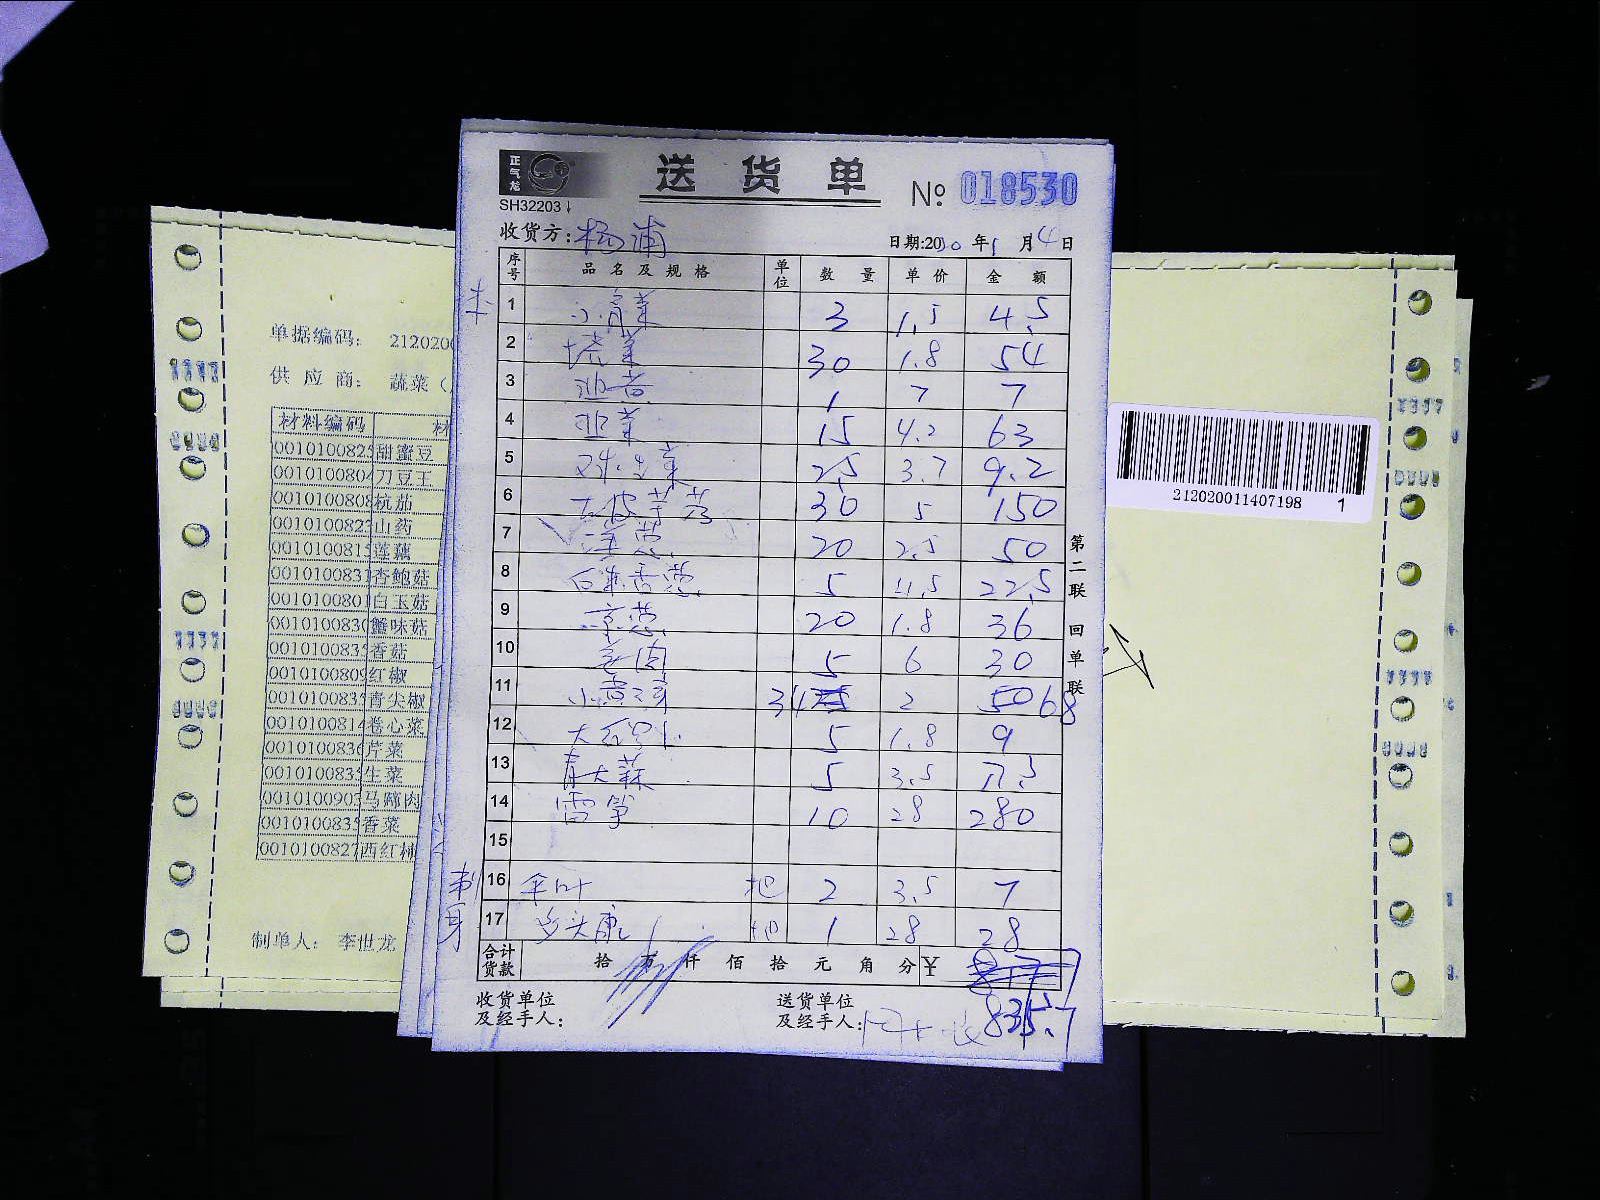 正气龙
送货单
№ 018530
SH32203
收货方: 杨浦
日期:2020年1月4日
序号 品名及规格 单位 数量 单价 金额
1 小青菜 3 1.5 4.5
2 塔菜 30 1.8 54
3 1 7 7
4 韭菜 15 4.2 63
5 2.5 3.7 9.2
6 30 5 150
7 洋葱 20 2.5 50
8 白米香葱 5 4.5 22.5
9 京葱 20 1.8 36
10 姜肉 5 6 30
11 34 2 68
12 5 1.8 9
13 青大蒜 5 3.5 17.5
14 雷笋 10 28 280
15
16 把 2 3.5 7
17 1 28 28
合计货款 拾 万 仟 佰 拾 元 角 分 ¥
835.7
收货单位及经手人:
送货单位及经手人:
第二联 回单联
刺身
单据编码: 212020
供应商: 蔬菜(
材料编码 材
001010082 甜蜜豆
001010080 刀豆王
001010080 杭茄
001010082 山药
001010081 莲藕
001010083 杏鲍菇
001010080 白玉菇
001010083 蟹味菇
001010083 香菇
001010080 红椒
001010083 青尖椒
001010081 卷心菜
001010083 芹菜
001010083 生菜
001010090 马蹄肉
001010083 香菜
001010082 西红柿
制单人: 李世龙
212020011407198 1